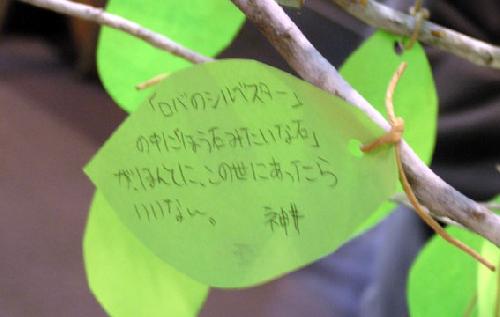 「ロバのシルベスター」
の中に「ほう石みたいな石」
が、ほんとに、この世にあったら
いいな〜。 神井